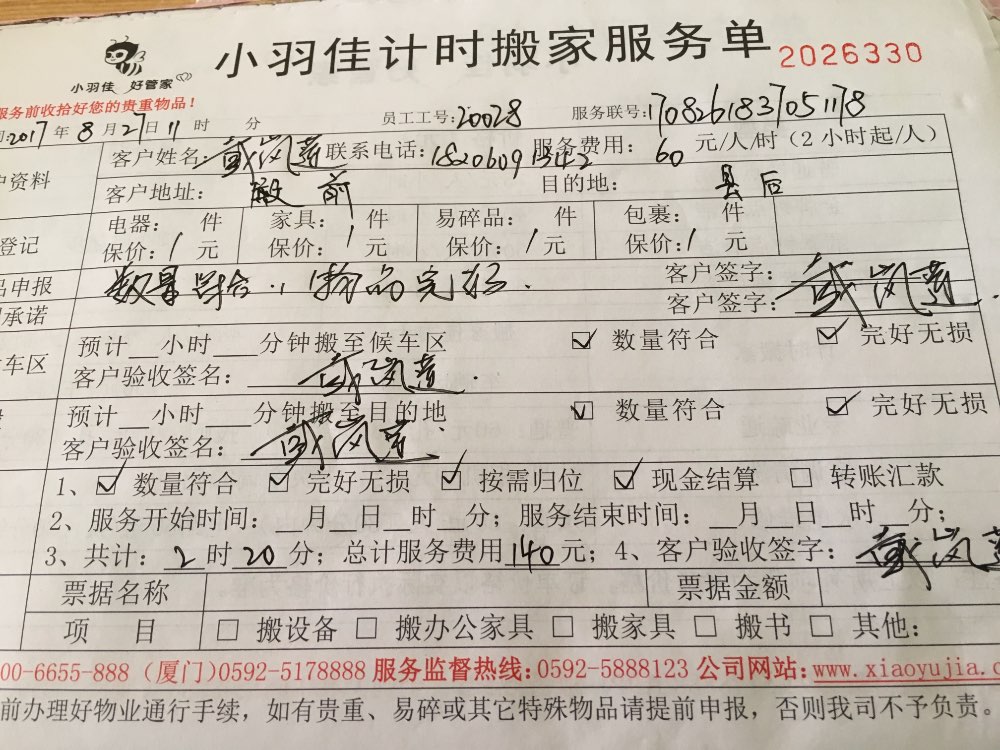 小羽佳 好管家
小羽佳计时搬家服务单 2026330
服务前收拾好您的贵重物品！
2017年8月27日11时 分 员工工号：20028 服务联号：1708261837051178
客户姓名： 岚莲 联系电话： 服务费用：60元/人/时（2小时起/人）
户资料
客户地址：殿前 目的地：县后
登记
电器： 件 家具： 件 易碎品： 件 包裹： 件
保价：/元 保价：/元 保价：/元 保价：/元
品申报 数量符合，物品完好． 客户签字： 岚莲
承诺 客户签字：
预计__小时___分钟搬至候车区 ☑ 数量符合 ☑ 完好无损
车区
客户验收签名： 岚莲
预计__小时___分钟搬至目的地 ☑ 数量符合 ☑ 完好无损
客户验收签名： 岚莲
1、☑ 数量符合 ☑ 完好无损 ☑ 按需归位 ☑ 现金结算 □ 转账汇款
2、服务开始时间：__月__日__时__分；服务结束时间：__月__日__时__分；
3、共计：2时20分；总计服务费用140元；4、客户验收签字： 岚莲
票据名称 票据金额
项 目 □ 搬设备 □ 搬办公家具 □ 搬家具 □ 搬书 □ 其他：
00-6655-888（厦门）0592-5178888 服务监督热线：0592-5888123 公司网站：www.xiaoyujia.c
前办理好物业通行手续，如有贵重、易碎或其它特殊物品请提前申报，否则我司不予负责。